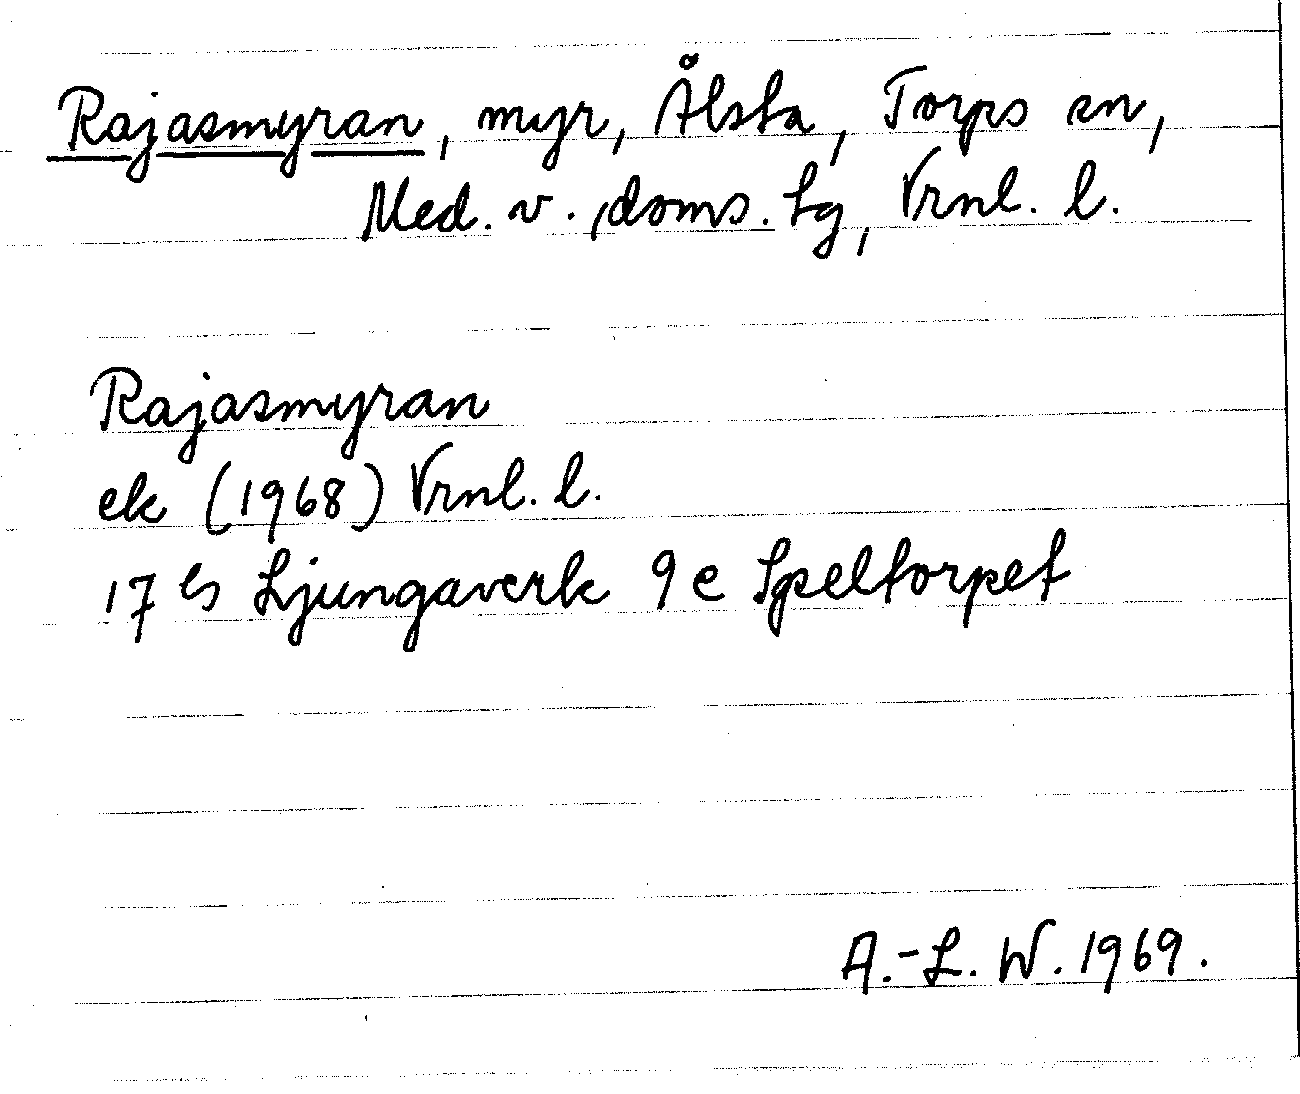 Rajasmyran, myr, Ålsta, Torps sn,
Med. v. doms. lg, Vrnl. l.
Rajasmyran
ek (1968) Vrnl. l.
17 Ljungaverk 9 e Speltorpet
A.-L. W. 1969.